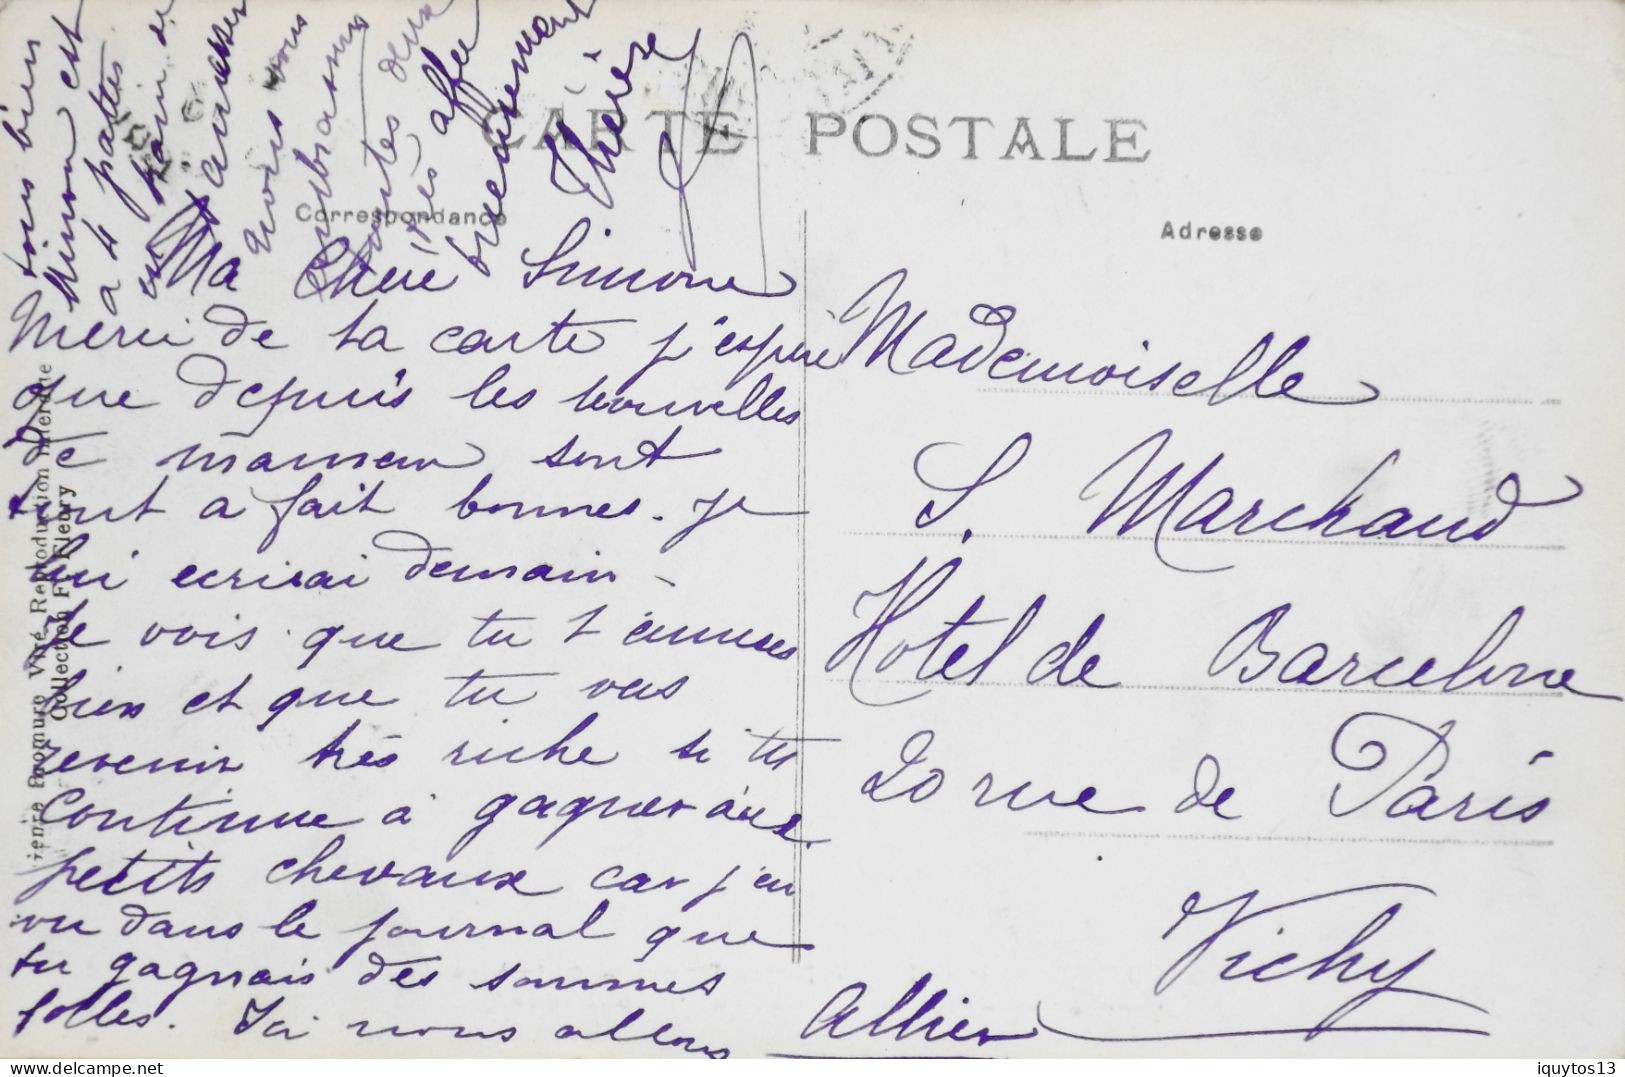 CARTE POSTALE
Correspondance
Adresse
Ma Chère Simone
Merci de ta carte j'espère
que depuis les nouvelles
de maman sont
tout a fait bonnes. Je
lui ecrirai demain -
Je vois que tu t'amuses
bien et que tu vas
revenir très riche si tu
continue à gagner aux
petits chevaux car j'ai
vu dans le journal que
tu gagnais des sommes
folles. Ici nous allons
tous bien
Minou est
a 4 pattes
en train de
s'amuser
nous vous
embrassons
toutes deux
très affec
tueusement
Thérèse
Mademoiselle
S. Marchand
Hotel de Barcelone
20 rue de Paris
Vichy
Allier
Bromure Vitré Reproduction Interdite
Collection F. Fleury
delcampe.net
iquytos13